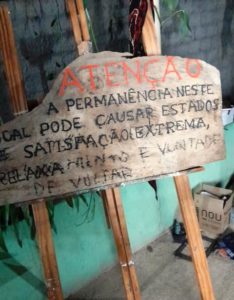 ATENÇÃO
A PERMANÊNCIA NESTE
CAL PODE CAUSAR ESTADOS
E SATISFAÇÃO EXTREMA,
RELAXAMENTO E VONTADE
DE VOLTAR
nou